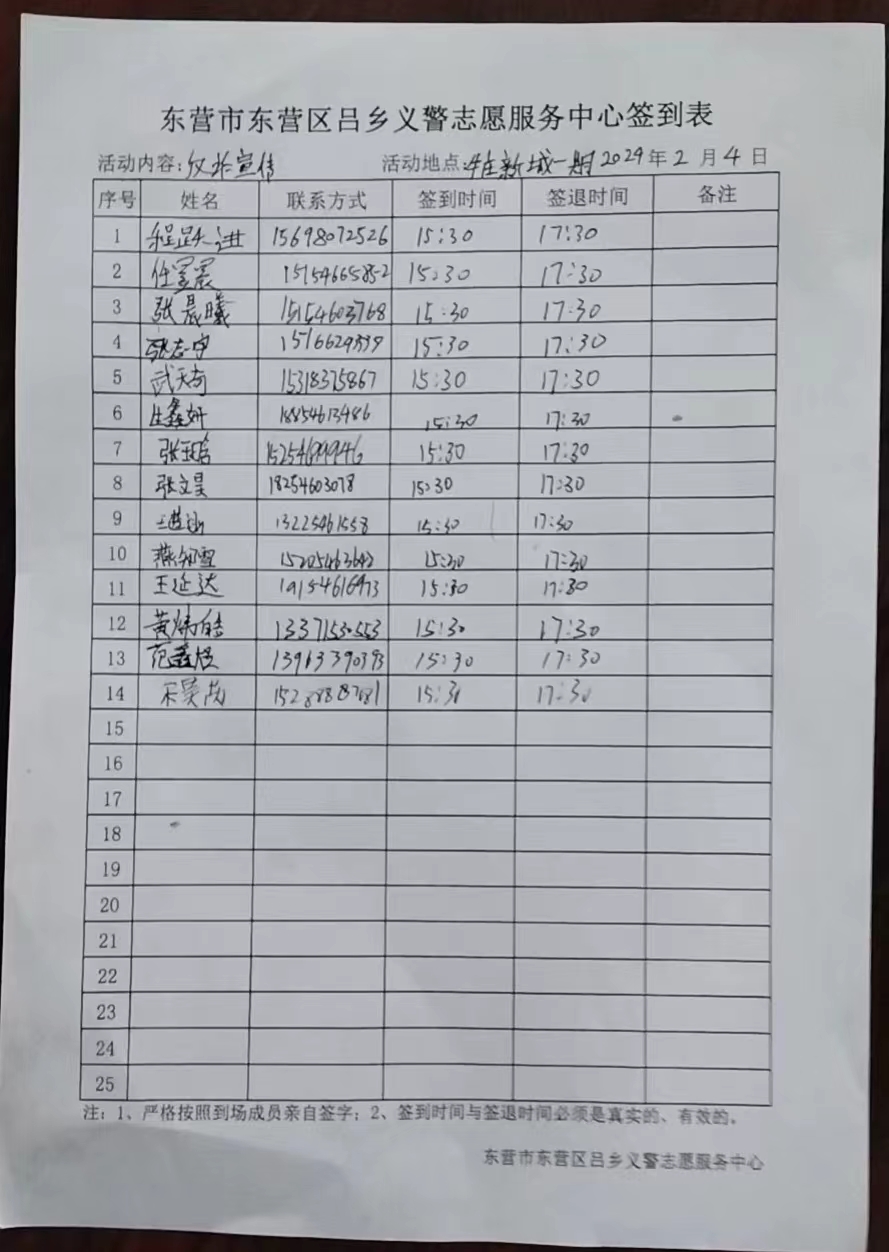 东营市东营区吕乡义警志愿服务中心签到表
活动内容:反诈宣传 活动地点:牛庄新城一期 2024年2月4日
序号 姓名 联系方式 签到时间 签退时间 备注
1 15698072526 15:30 17:30
2 15154665852 15:30 17:30
3 张晨曦 15154603768 15:30 17:30
4 张志宇 15:30 17:30
5 武天奇 15318375867 15:30 17:30
6 18854613486 15:30 17:30
7 15:30 17:30
8 张文昊 18254603078 15:30 17:30
9 13225461558 15:30 17:30
10 燕知雪 15205463642 15:30 17:30
11 王延达 19154616973 15:30 17:30
12 黄炜皓 13371530553 15:30 17:30
13 13963390393 15:30 17:30
14 宋昊茂 15:30 17:30
15
16
17
18
19
20
21
22
23
24
25
注:1、严格按照到场成员亲自签字;2、签到时间与签退时间必须是真实的、有效的。
东营市东营区吕乡义警志愿服务中心